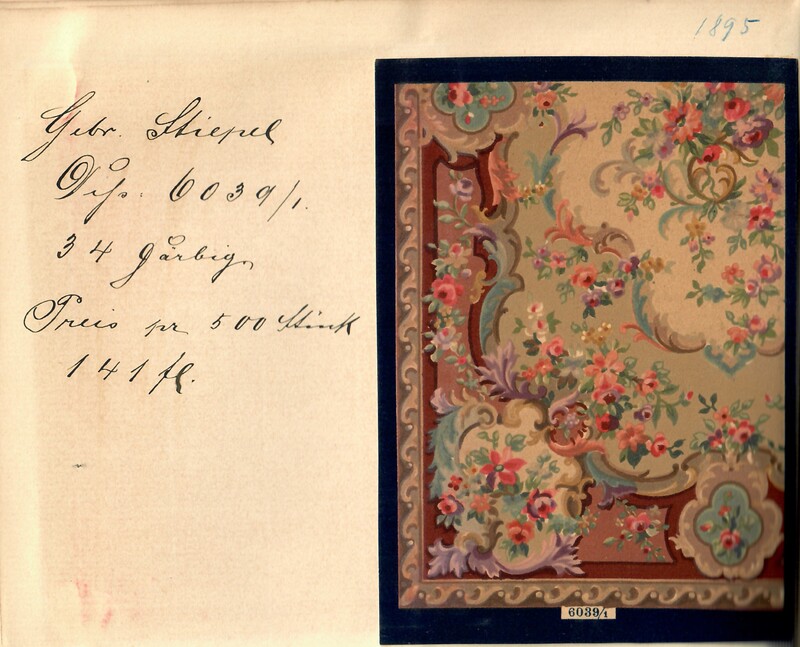 1895
Gebr. Stiepel
Dess. 6039/1.
34 färbig
Preis pr 500 Stück
141 fl.
6039/1